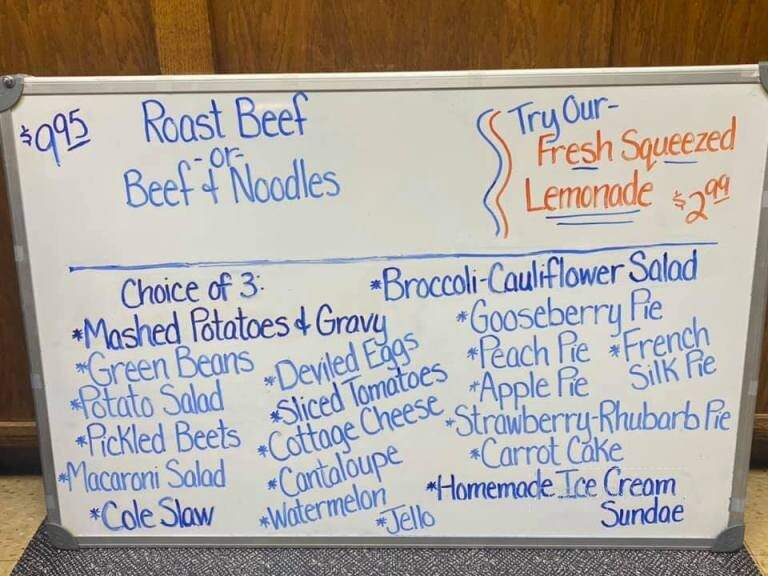 $9.95 Roast Beef
-or-
Beef & Noodles
Try Our-
Fresh Squeezed
Lemonade $2.99
Choice of 3:
*Mashed Potatoes & Gravy
*Green Beans
*Potato Salad
*Pickled Beets
*Macaroni Salad
*Cole Slaw
*Deviled Eggs
*Sliced Tomatoes
*Cottage Cheese
*Cantaloupe
*Watermelon
*Jello
*Broccoli-Cauliflower Salad
*Gooseberry Pie
*Peach Pie *French
Silk Pie
*Apple Pie
*Strawberry-Rhubarb Pie
*Carrot Cake
*Homemade Ice Cream
Sundae